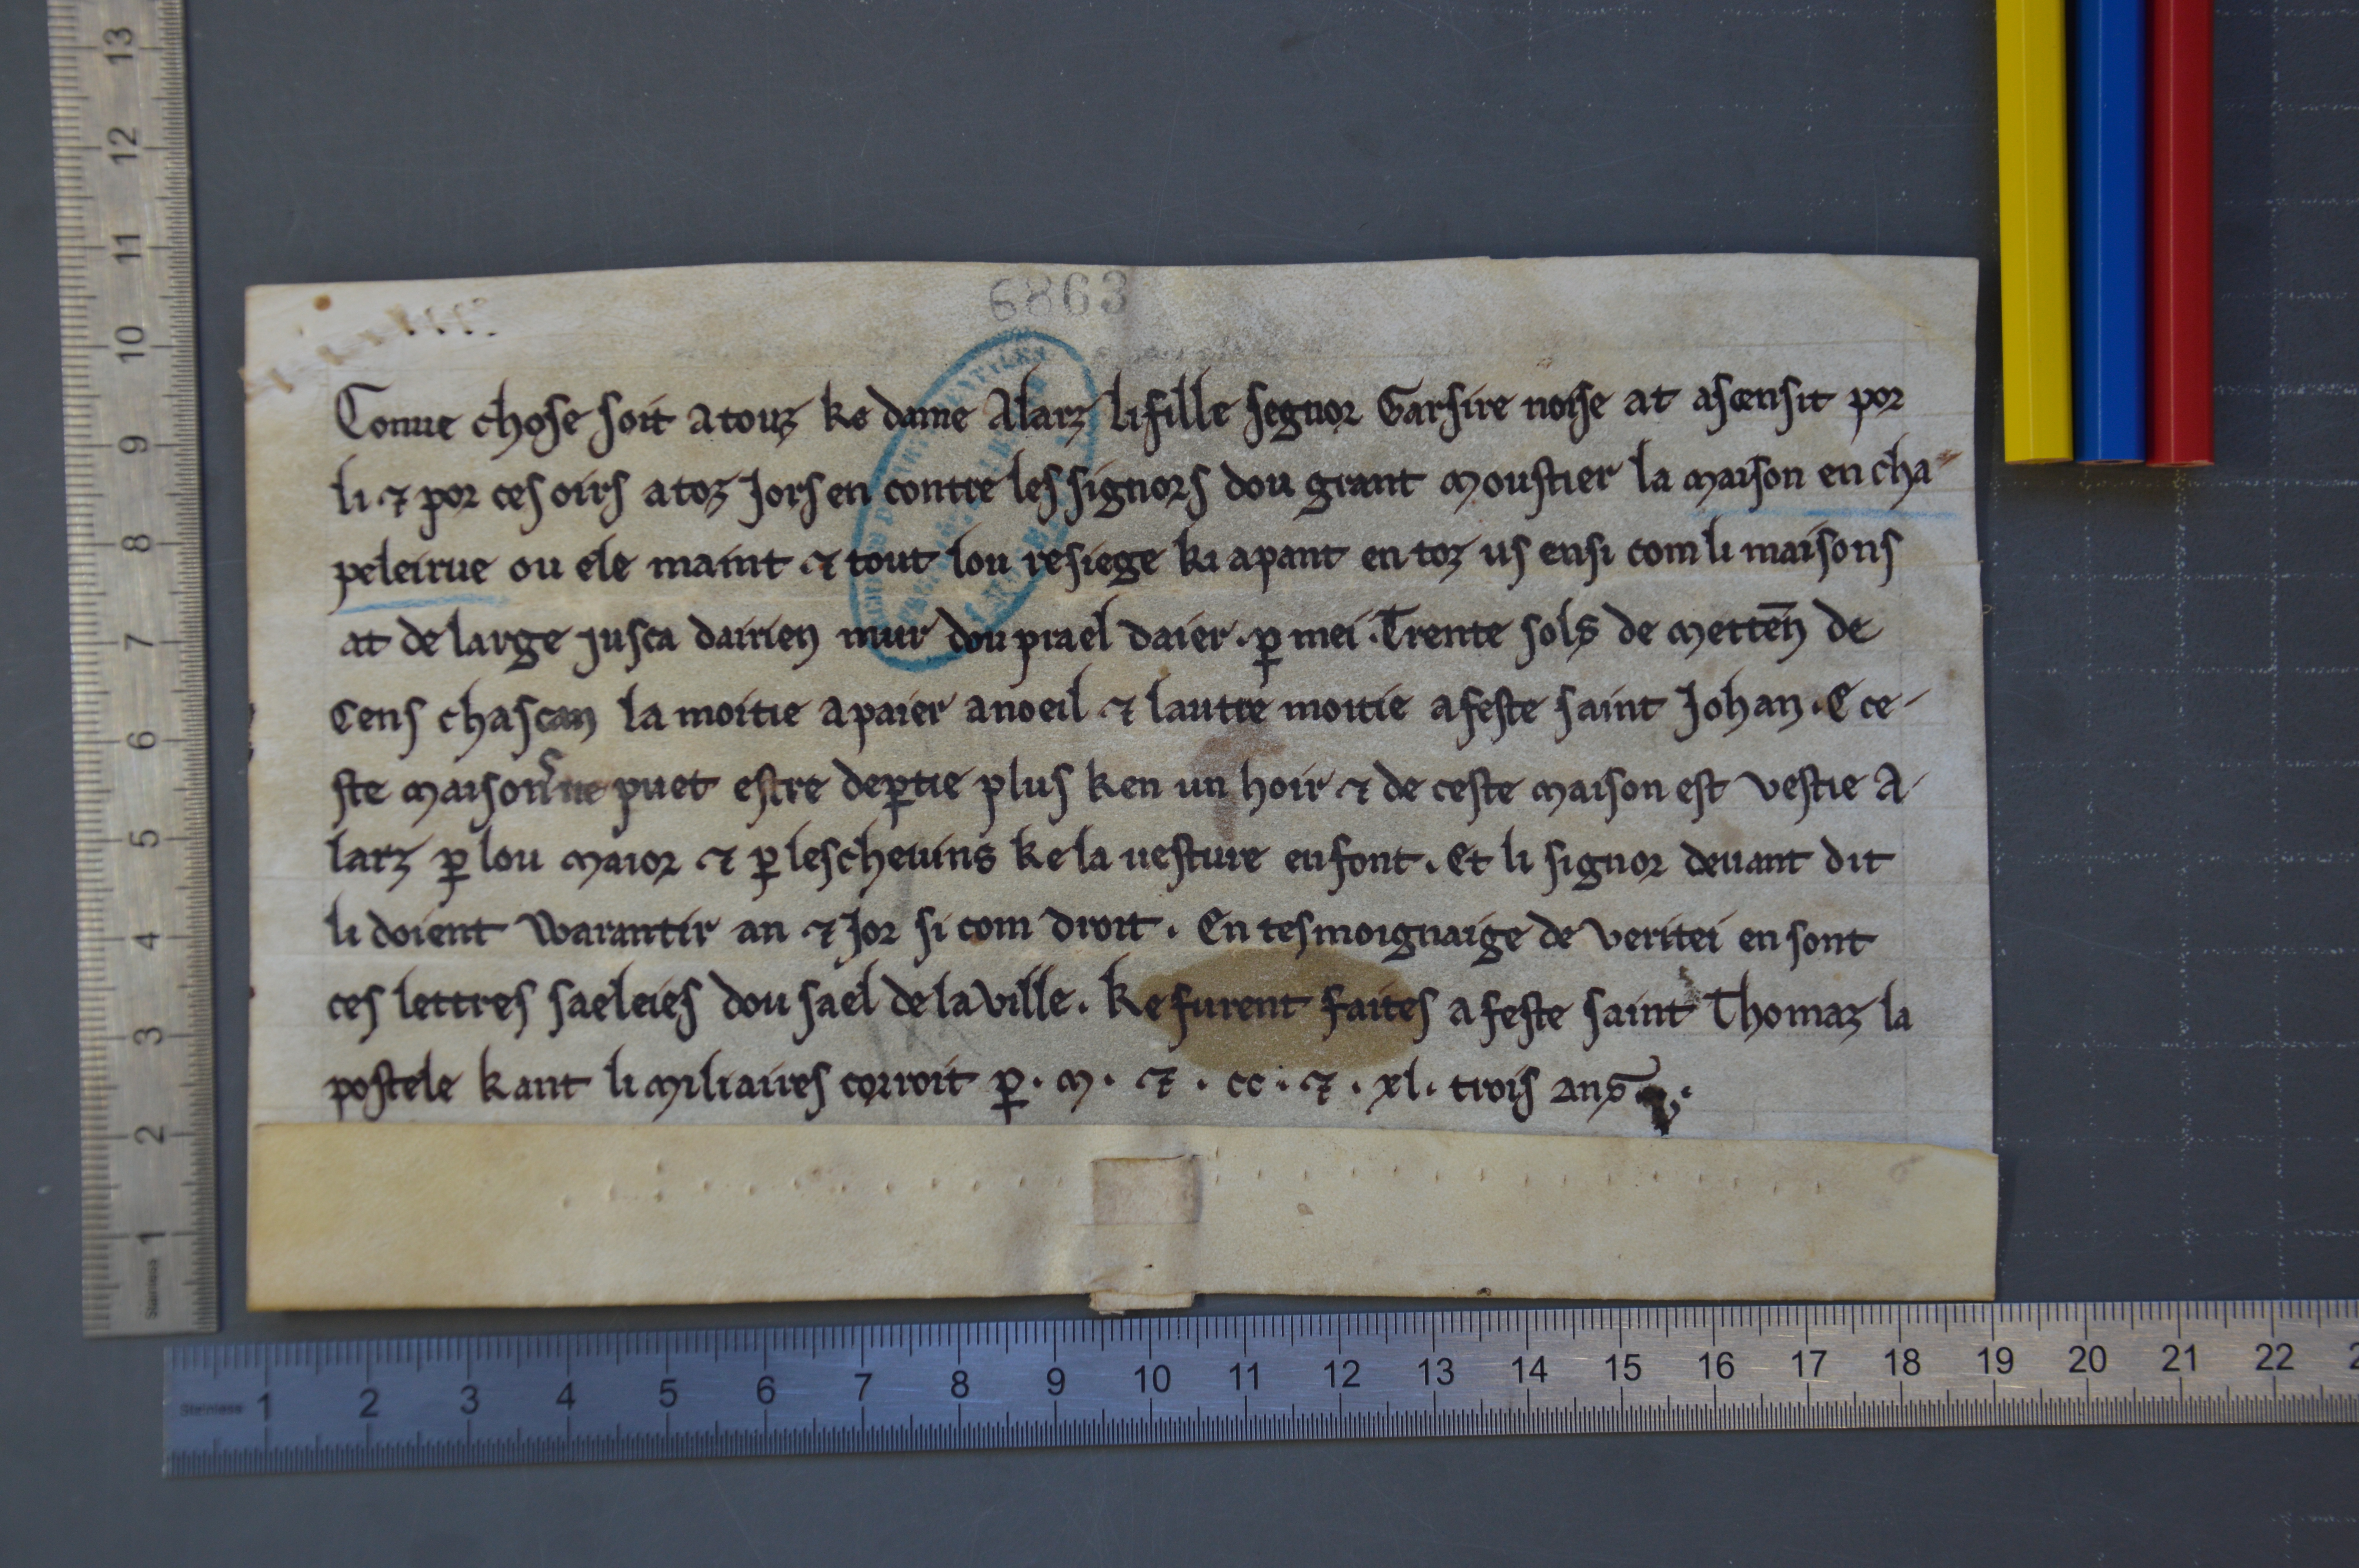 6863
Conue chose soit a touz ke dame Alarz li fille segnor Garsire noise at ascensit por
li ⁊ por ces oirs a toz Jors en contre les signors dou grant moustier la maison en cha-
peleirue ou ele maint ⁊ tout lou resiege ki apant en toz us ensi com li maisons
at de large jusca dairien mur dou prael daier. p̱ mei. Trente sols de metteñ de
Cens chascan la moitie a paier a noeil ⁊ lautre moitie a feste saint Johan. E ce-
ste maison ne puet estre dep̱tie plus ken un hoir ⁊ de ceste maison est vestie A-
larz p̱ lou maior ⁊ p̱ les cheuins ke la uesture en font. Et li signor deuant dit
li doient Warantir an ⁊ Jor si com droit. En tesmoignaige de veritei en sont
ces lettres saeleies dou sael de la ville. Ke furent faites a feste saint Thomaz la
postele kant li miliaires corroit p̱. m. ⁊. cc. ⁊. xl. trois ans.